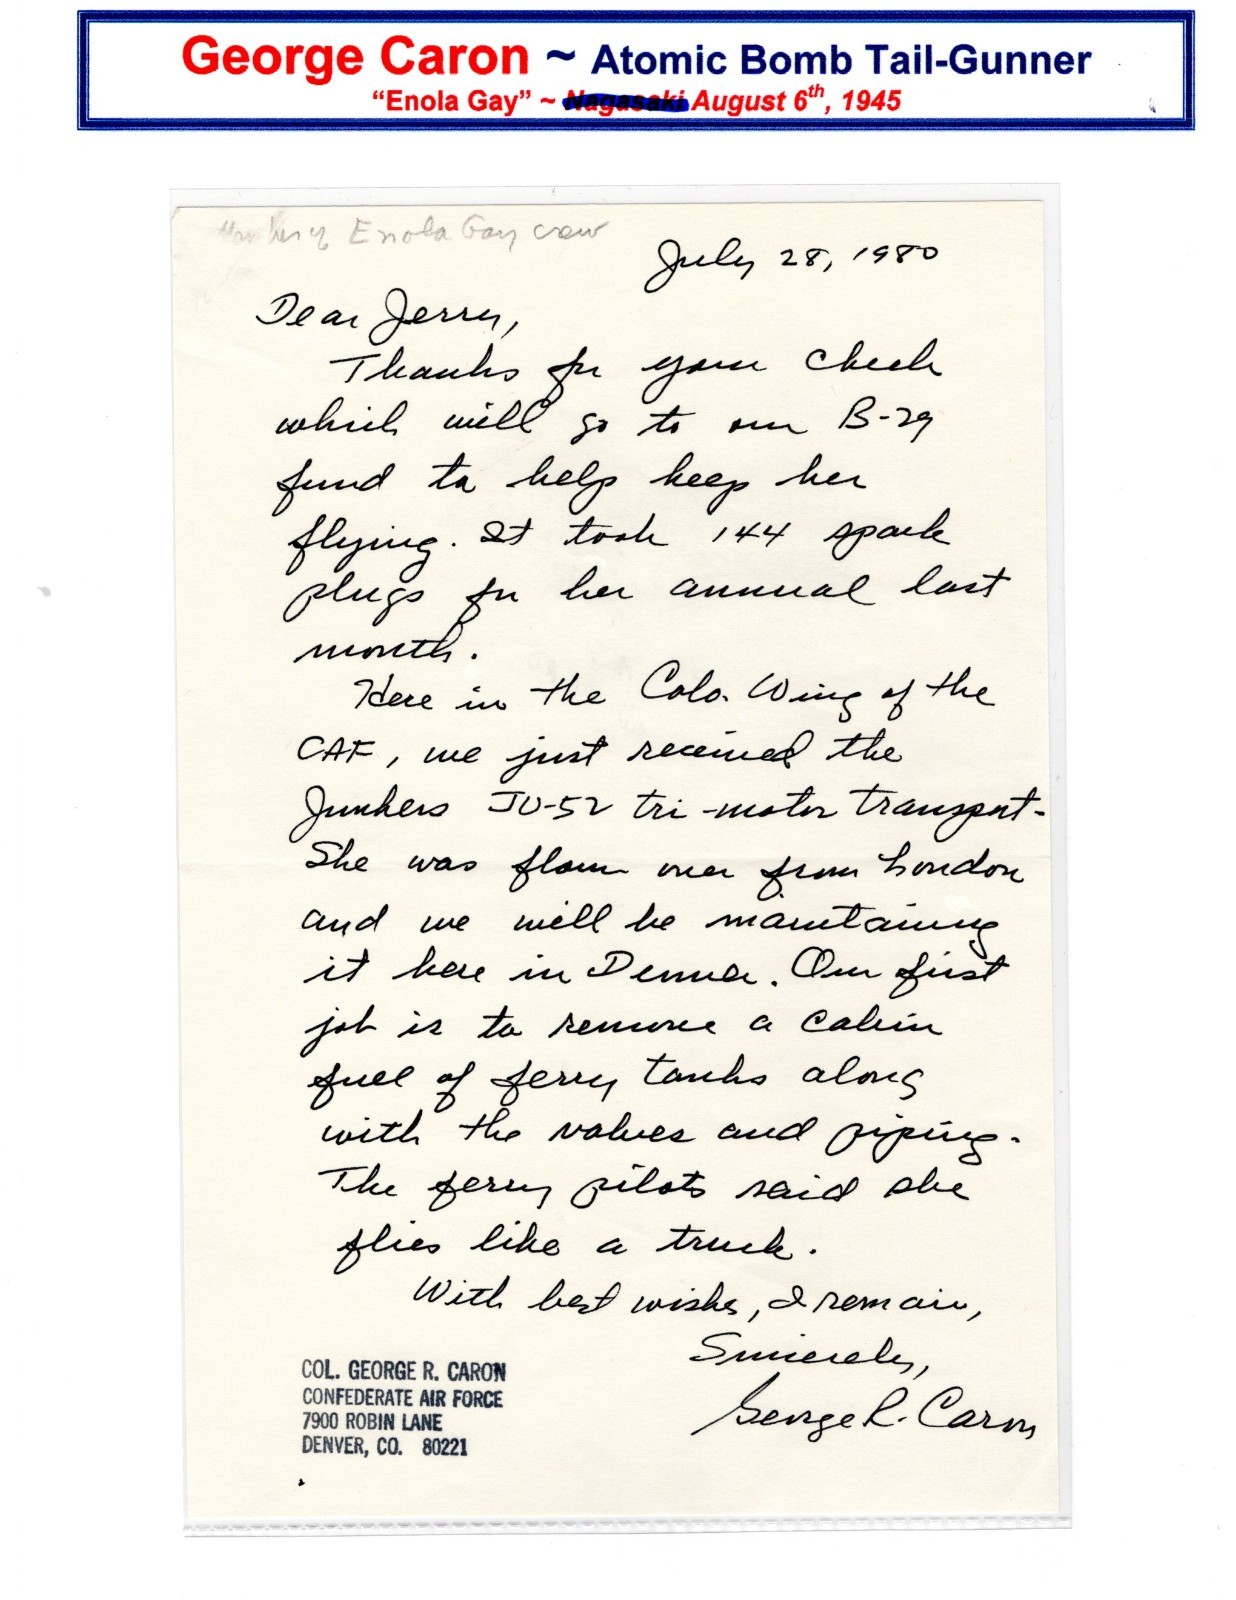 George Caron ~ Atomic Bomb Tail-Gunner
"Enola Gay" ~ Nagasaki August 6th, 1945
Enola Gay crew
July 28, 1980
Dear Jerry,
Thanks for your check
which will go to our B-29
fund to help keep her
flying. It took 144 spark
plugs for her annual last
month.
Here in the Colo. Wing of the
CAF, we just received the
Junkers JU-52 tri-motor transport-
She was flown over from London
and we will be maintaining
it here in Denver. Our first
job is to remove a cabin
full of ferry tanks along
with the valves and piping.
The ferry pilots said she
flies like a truck.
With best wishes, I remain,
Sincerely,
George R. Caron
COL. GEORGE R. CARON
CONFEDERATE AIR FORCE
7900 ROBIN LANE
DENVER, CO. 80221